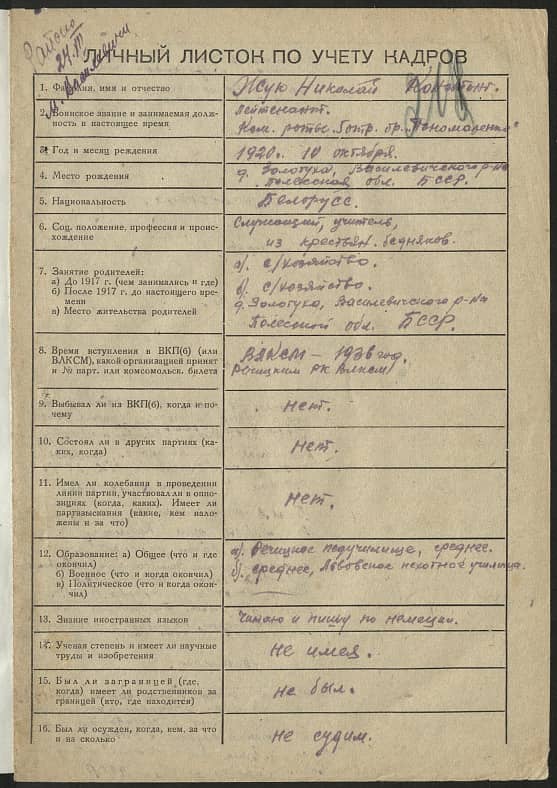 24/III
ЛИЧНЫЙ ЛИСТОК ПО УЧЕТУ КАДРОВ
1. Фамилия, имя и отчество
Жук Николай Констант.
2. Воинское звание и занимаемая долж-
ность в настоящее время
лейтенант.
Ком. роты отр. бр. "Пономаренко"
3. Год и месяц рождения
1920 г. 10 октября.
4. Место рождения
д. Золотуха, Василевичского р-на
Полесская обл. БССР.
5. Национальность
Белорусс.
6. Соц. положение, профессия и проис-
хождение
Служащий, учитель,
из крестьян. бедняков.
7. Занятие родителей:
а) До 1917 г. (чем занимались и где)
б) После 1917 г. до настоящего вре-
мени
в) Место жительства родителей
а). с/хозяйство.
б). с/хозяйство.
д. Золотуха, Василевичского р-на
Полесской обл. БССР.
8. Время вступления в ВКП(б) (или
ВЛКСМ), какой организацией принят
и № парт. или комсомольск. билета
ВЛКСМ – 1936 год.
Речицким РК ВЛКСМ
9. Выбывал ли из ВКП(б), когда и по-
чему
нет.
10. Состоял ли в других партиях (ка-
ких, когда)
Нет.
11. Имел ли колебания в проведении
линии партии, участвовал ли в оппо-
зициях (когда, каких). Имеет ли
партвзыскания (какие, кем нало-
жены и за что)
Нет.
12. Образование: а) Общее (что и где
окончил)
б) Военное (что и когда окончил)
в) Политическое (что и когда окон-
чил)
а). Речицкое педучилище, среднее.
б). среднее, Львовское пехотное училище.
13. Знание иностранных языков
Читаю и пишу по немецки.
14. Ученая степень и имеет ли научные
труды и изобретения
не имея.
15. Был ли заграницей (где,
когда) имеет ли родственников за
границей (кто, где находится)
не был.
16. Был ли осужден, когда, кем, за что
и на сколько
не судим.